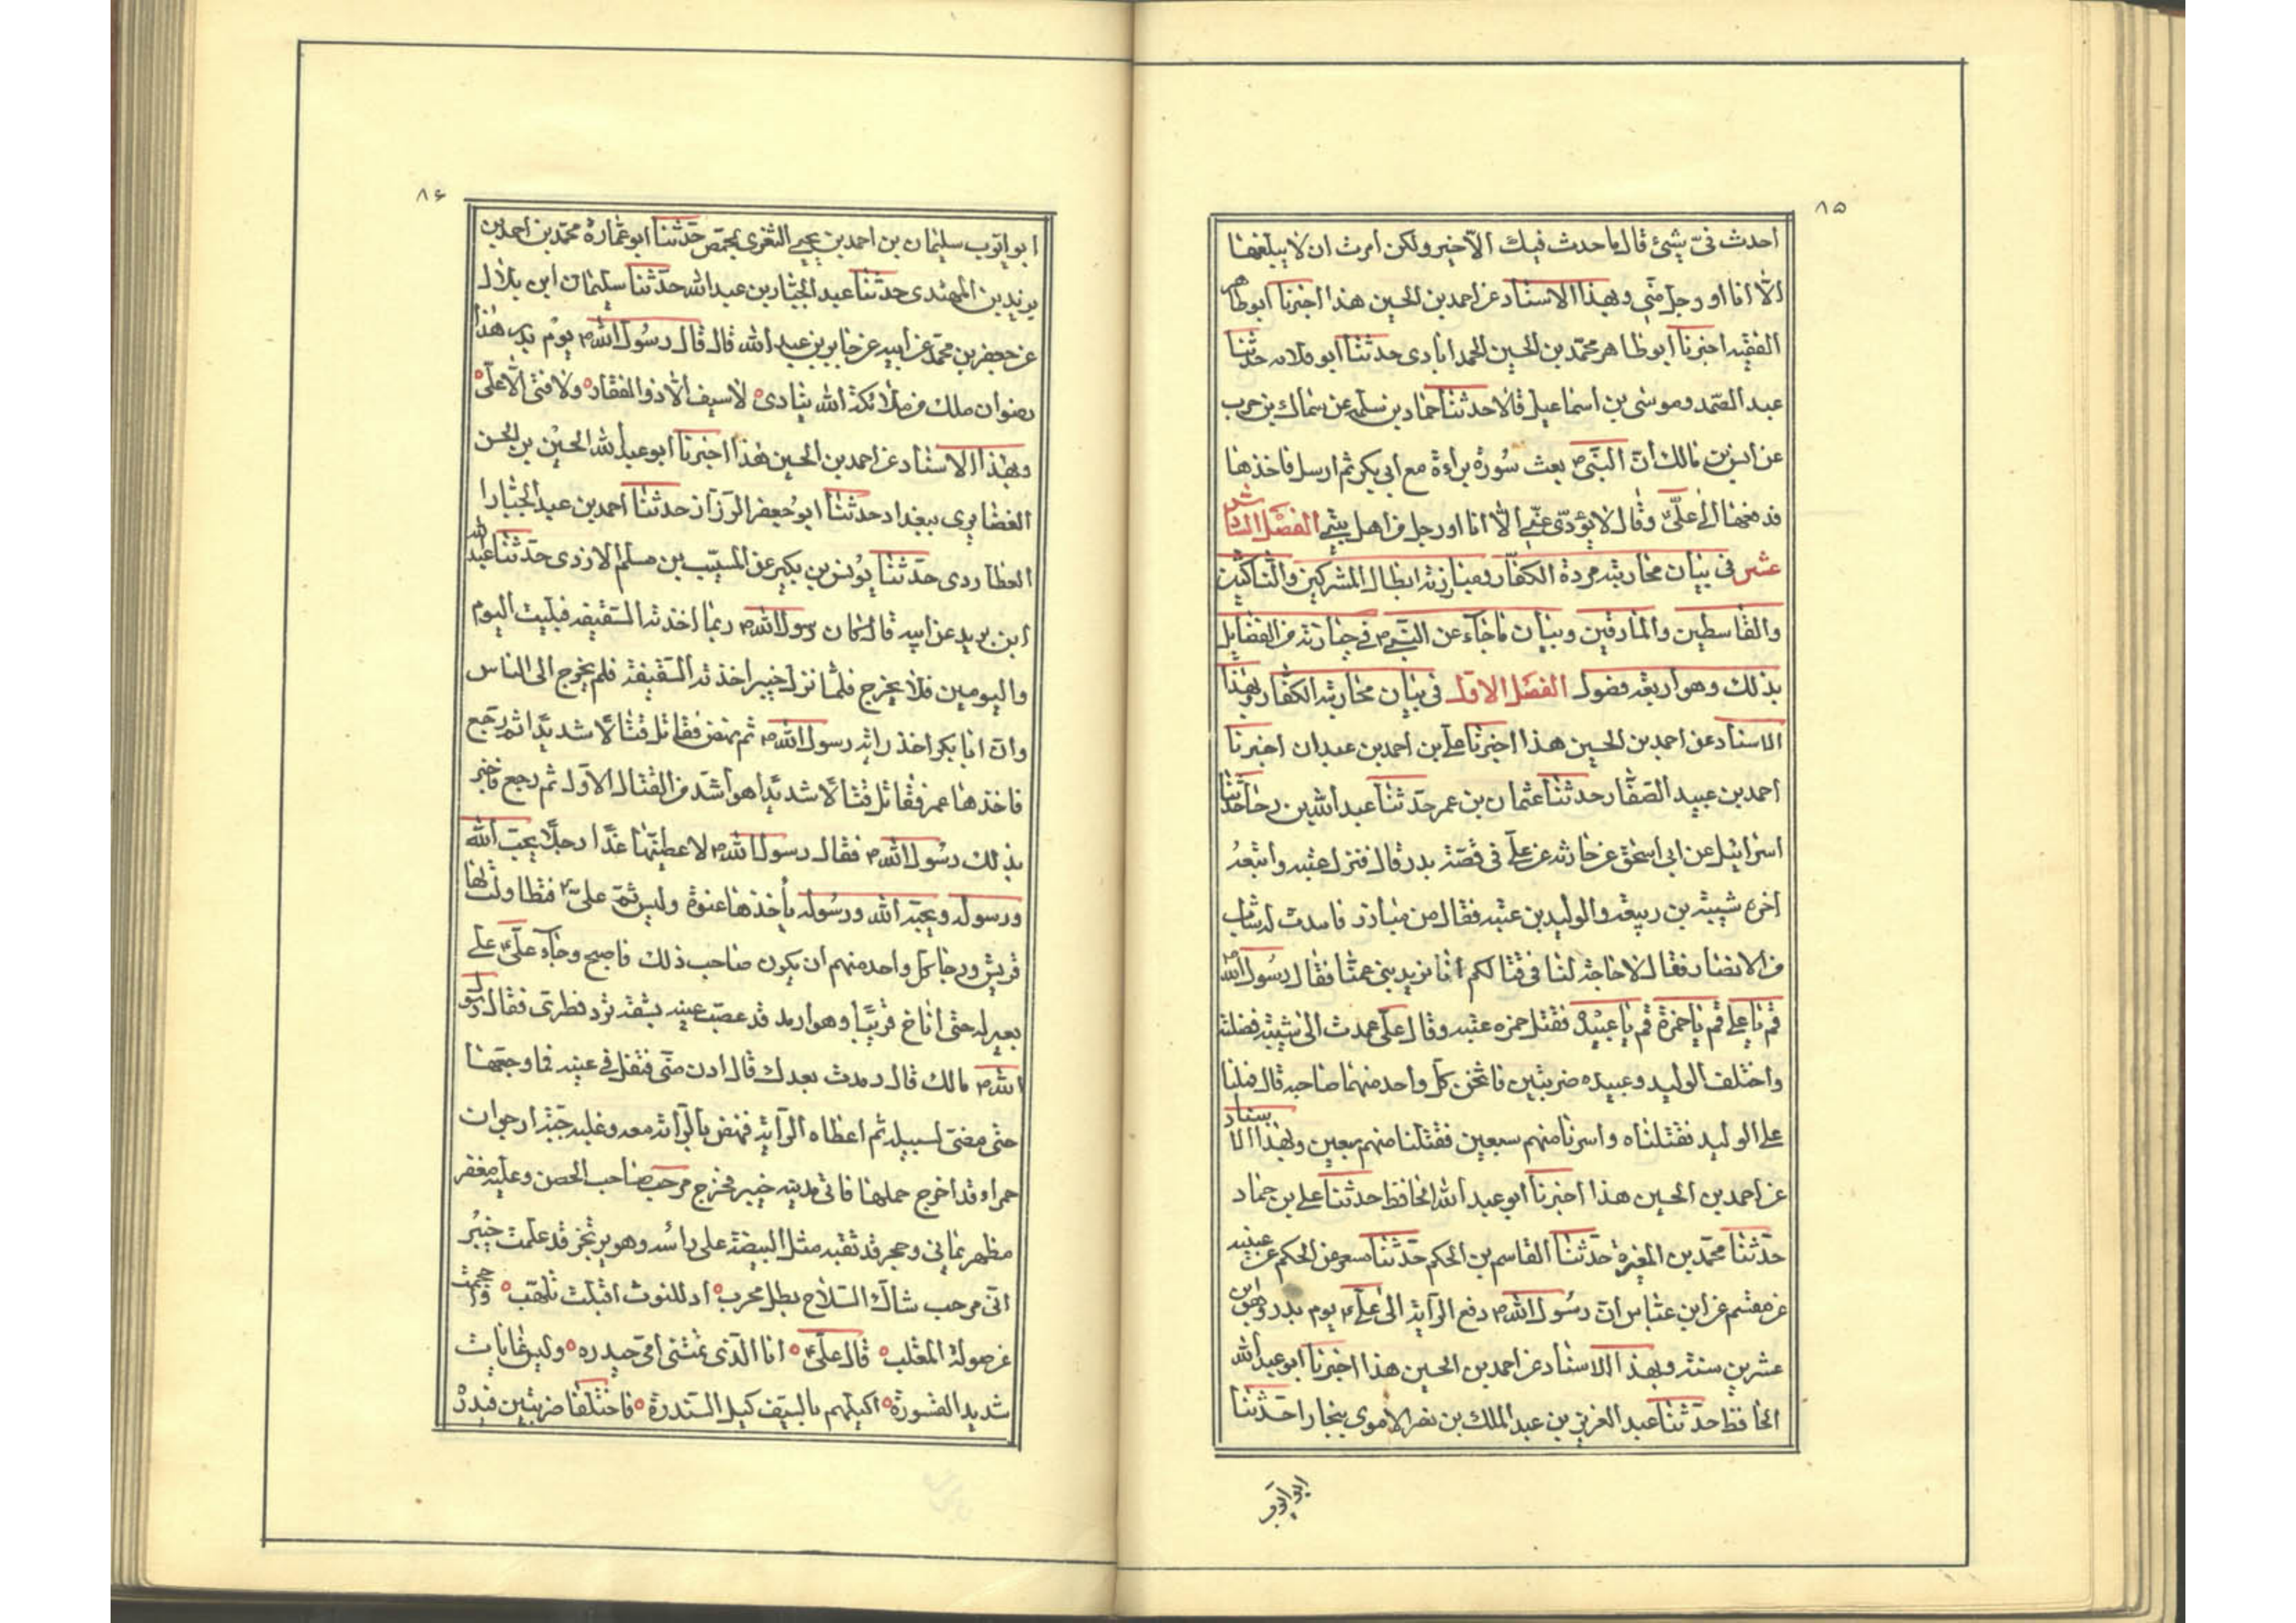 ٨٥
أحدث فىّ شئ قال ما حدث فيك الّا خير ولكن أمرت ان لا يبلغها
الّا انا او رجل منّى وبهذا الاسناد عن احمد بن الحسين هذا اخبرنا ابو طاهر
الفقيه اخبرنا ابو طاهر محمّد بن الحسين المحمدابادى حدثنا ابو قلابه حدّثنا
عبد الصّمد وموسى بن اسماعيل قالا حدثنا حماد بن سلمه عن سماك بن حرب
عن انس بن مالك انّ النبىّ ص بعث سورة براءة مع ابى بكر ثم ارسل فاخذها
فدفعها الى علىّ وقال لا يؤدّى عنّى الّا انا او رجل من اهل بيتى الفصل السادس
عشر فى بيان محاربته مردة الكفّار ومبارزته ابطال المشركين والنّاكثين
والقاسطين والمارقين وبيان ما جآء عن النبى ص فى جنازته من الفضايل
بذلك وهو اربعة فصول الفصل الاوّل فى بيان محاربته الكفّار بهذا
الاسناد عن احمد بن الحسين هذا اخبرنا على بن احمد بن عبدان اخبرنا
احمد بن عبيد الصّفّار حدثنا عثمان بن عمر حدّثنا عبد الله بن رجا حدّثنا
اسرائيل عن ابى اسحق عن حارثه عن علىّ فى قصّة بدر قال فنزل عتبه واتبعهُ
اخوه شيبة بن ربيعة والوليد بن عتبه فقال من مبارز فانتدب له شاب
من الانصار فقال لا حاجة لنا فى قتالكم انّا نريد بنى عمنا فقال رسول الله ص
قم يا على قم يا حمزة قم يا عبيدة فقتل حمزه عتبه وقال على عمدت الى شيبة فقتلته
واختلف الوليد وعبيده ضربتين فاثخن كلّ واحد منهما صاحبه قال فملنا
على الوليد فقتلناه واسرنا منهم سبعين فقتلنا منهم سبعين وبهذا الاسناد
عن احمد بن الحسين هذا اخبرنا ابو عبد الله الحافظ حدثنا على بن حماد
حدّثنا محمّد بن المغيرة حدّثنا القاسم بن الحكم حدّثنا مسعر عن الحكم عن عتيبه
عن مقسم عن ابن عبّاس انّ رسول الله ص دفع الرّاية الى علىّ ع يوم بدر وهو ابن
عشرين سنة وبهذا الاسناد عن احمد بن الحسين هذا اخبرنا ابو عبد الله
الحافظ حدّثنا عبد العزيز بن عبد الملك بن نصر الاموى ببخارا حدّثنا
ابو ايّوب
٨۶
ابو ايّوب سليمان بن احمد بن يحيى الثغرى بحمص حدّثنا ابو عمارة محمّد بن احمد بن
يزيد بن المهتدى حدّثنا عبد الجبّار بن عبد الله حدّثنا سليمان ابن بلال
عن جعفر بن محمّد عن ابيه عن جابر بن عبد الله قال قال رسول الله ص يوم بدر هذا
رضوان ملك من ملائكة الله ينادى لا سيف الّا ذو الفقار ولا فتى الّا علىّ
وبهذا الاسناد عن احمد بن الحسين هذا اخبرنا ابو عبد الله الحسين بن الحسن
الغضايرى ببغداد حدثنا ابو جعفر الرزّاز حدثنا احمد بن عبد الجبّار ا
العطاردى حدّثنا يونس بن بكير عن المسيّب بن مسلم الازدى حدّثنا عبد الله
ابن بريد عن ابيه قال كان رسول الله ص ربما اخذته السقيفه فيلبث اليوم
واليومين فلا يخرج فلمّا نزل خيبر اخذته السقيفة فلم يخرج الى الناس
وان ابا بكر اخذ راية رسول الله ص ثم نهض فقاتل قتالًا شديدًا ثم رجع
فاخذها عمر فقاتل قتالًا شديدًا هو اشدّ من القتال الاوّل ثم رجع فاخبر
بذلك رسول الله ص فقال رسول الله ص لاعطينّها غدًا رجلًا يحبّ الله
ورسوله ويحبّه الله ورسوله يأخذها عنوة وليس ثمّ علىّ ع فتطاولت لها
قريش ورجا كل واحد منهم أن يكون صاحب ذلك فاصبح وجآء علىّ ع على
بعير له حتى اناخ قريبًا وهو ارمد قد عصب عينه بشقة برد قطرى فقال رسول
الله ص مالك قال رمدت بعدك قال ادن منّى فتفل فى عينه فما وجعها
حتى مضى لسبيله ثم اعطاه الراية فنهض بالرّاية معه وعليه جبّة ارجوان
حمراء قد اخرج حملها فاتى مدينة خيبر فخرج مرحب صاحب الحصن وعليه مغفر
مظهر يمانى وحجر قد ثقبه مثل البيضة على رأسه وهو يرتجز قد علمت خيبر
انّى مرحب شاك السّلاح بطل مجرب اذ للّيوث اقبلت تلهّب واحجمت
عن صولة المغلّب قال علىّ ع انا الّذى سمتنى امّى حيدره وليث غابات
شديد القسورة اكيلهم بالسيف كيل السّندرة فاختلفا ضربتين فبدرهُ